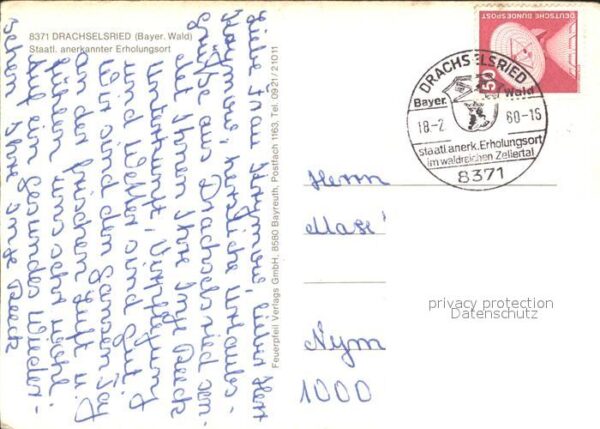 8371 DRACHSELSRIED (Bayer. Wald)
Staatl. anerkannter Erholungsort
Liebe Frau Anonymous, lieber Herr
Anonymous, herzliche Urlaubs-
grüße aus Drachselsried sen-
det Ihnen Ihre Inge Reeck
Unterkunft, Verpflegung
und Wetter sind gut.
Wir sind den ganzen Tag
an der frischen Luft u.
fühlen uns sehr wohl.
Auf ein gesundes Wieder-
sehen Ihre Inge Reeck
Feuerpfeil Verlags GmbH, 8580 Bayreuth, Postfach 1163, Tel. 0921/21011
DEUTSCHE BUNDESPOST
50
DRACHSELSRIED
Bayer. Wald
18.-2 80-15
staatl. anerk. Erholungsort
im waldreichen Zellertal
8371
Herrn
Max
Nym
1000
privacy protection
Datenschutz